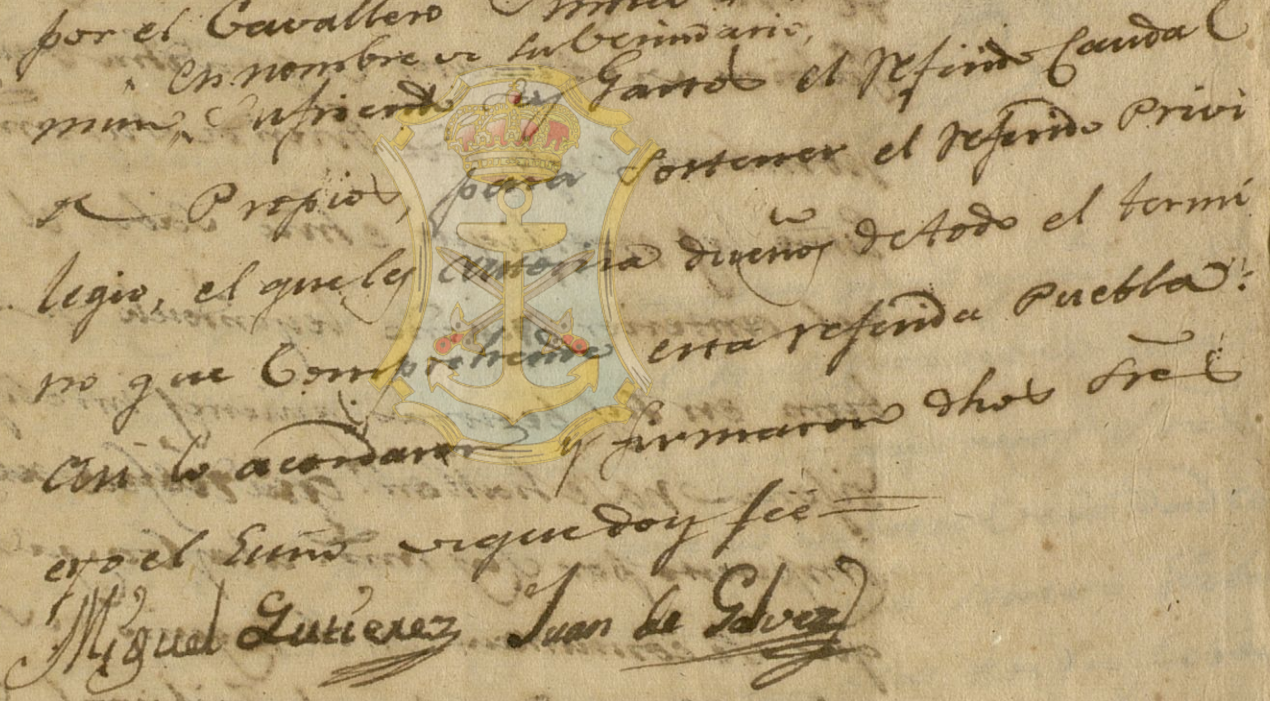 por el Cavallero
en nombre de su vecindario,
mun, sufriendo sus Gastos el referido Caudal
de Propios, para sostener el referido Privi
legio, el que les autoriza dueños de todo el termi
no que Comprehende esta referida Puebla:
asi lo acordaron y firmaron dhos Sres
e yo el Essno de que doy feé =
Miguel Gutierez Juan de Galvez